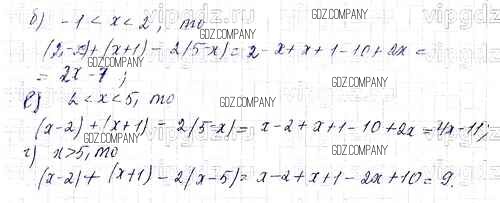 б) -1 < x < 2, то
(2-x)+(x+1)-2(5-x)=2-x+x+1-10+2x=
=2x-7;
в) 2<x<5, то
(x-2)+(x+1)=2(5-x)=x-2+x+1-10+2x=4x-11;
г) x>5, то
(x-2)+(x+1)-2(x-5)=x-2+x+1-2x+10=9.
GDZ.COMPANY
GDZ.COMPANY
GDZ.COMPANY
GDZ.COMPANY
GDZ.COMPANY
GDZ.COMPANY
GDZ.COMPANY
GDZ.COMPANY